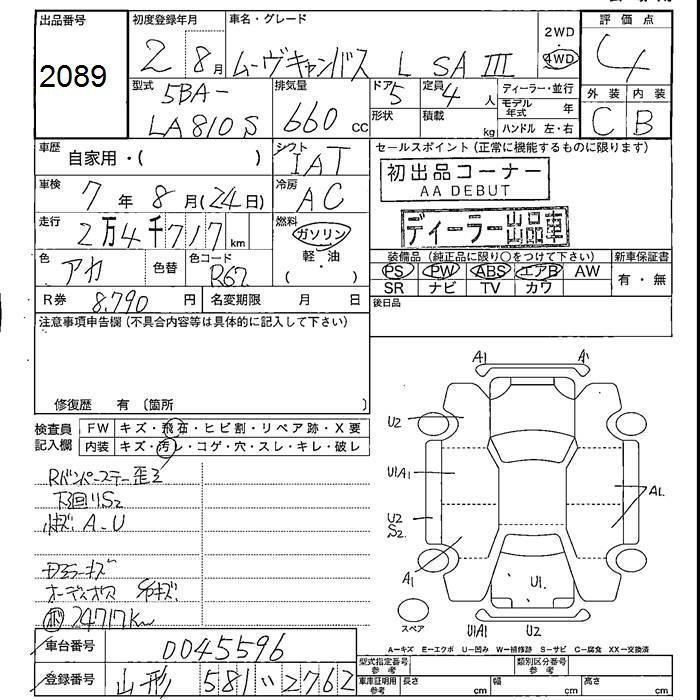 出品番号
2089
初度登録年月
2 8月
車名・グレード
ムーヴキャンバス L SA III
2WD
4WD
評価点
4
型式
5BA-
LA810S
排気量
660 cc
ドア
5
定員
4 人
形状
積載
kg
ディーラー・並行
モデル年式 年
ハンドル 左・右
外装
C
内装
B
車歴
自家用・( )
シフト
IAT
セールスポイント (正常に機能するものに限ります)
初出品コーナー
AA DEBUT
ディーラー出品車
車検
7年8月(24日)
冷房
AC
走行
2万4千717km
燃料
ガソリン
軽・油
( )
色
アカ
色替
色コード
R67
装備品 (純正品に限り○をつけて下さい)
PS PW ABS エアB AW
SR ナビ TV カワ
新車保証書
有・無
R券 8,790 円
名変期限 月 日
後日品
注意事項申告欄 (不具合内容等は具体的に記入して下さい)
修復歴 有 〔箇所 〕
検査員
記入欄
FW キズ・飛石・ヒビ割・リペア跡・X要
内装 キズ・汚レ・コゲ・穴・スレ・キレ・破レ
Rバンパーステー歪ミ
下廻リS2
小キズ A、U
24717Km
A1 A1
U2
U1A1
U2
S2
A1
A1
U1
U1A1 U2
スペア
A−キズ E−エクボ U−凹み W−補修跡 S−サビ C−腐食 XX−交換済
車台番号
0045596
登録番号
山形 581 い 2762
型式指定番号
参考
類別区分番号
参考
車庫証明用
参考
長さ cm
幅 cm
高さ cm